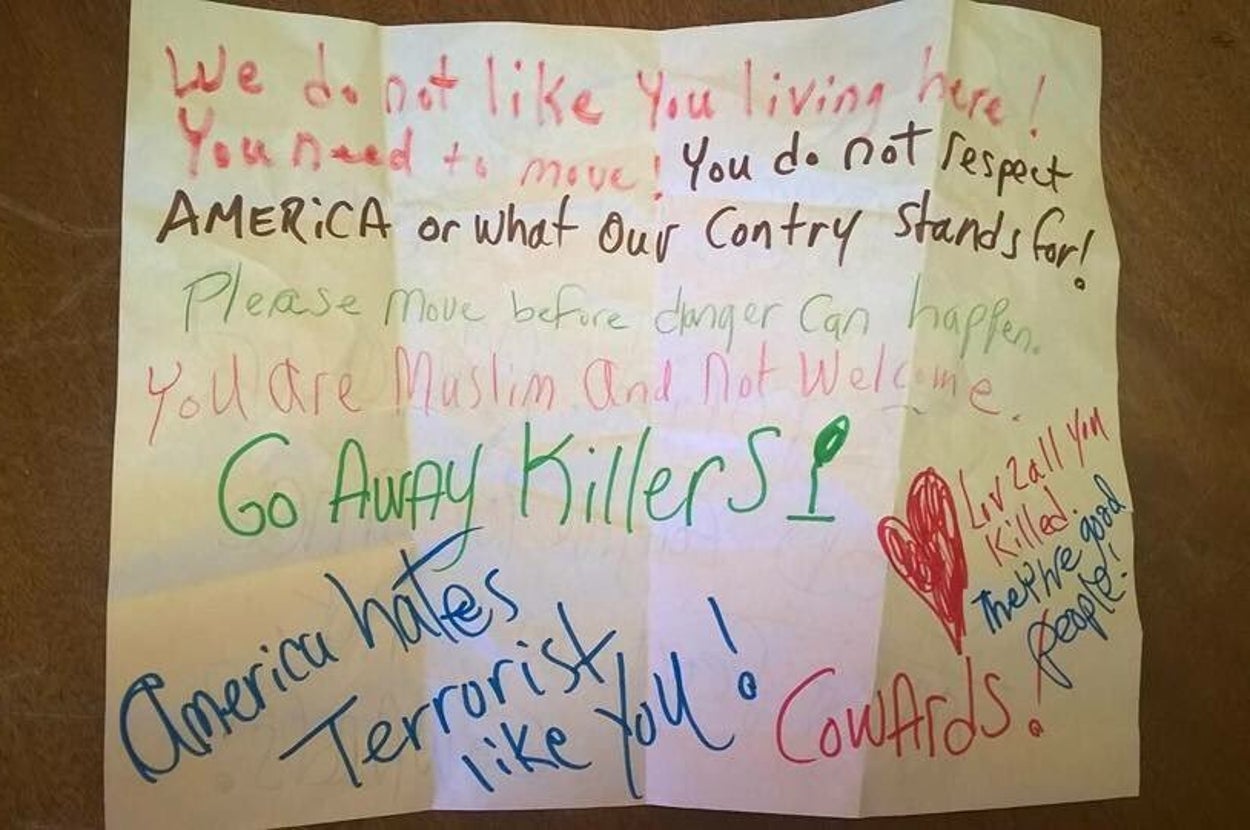 We do not like You living here!
You need to move! You do not respect
AMERiCA or what Our Contry Stands for!
Please Move before danger Can happen.
You are Muslim and Not Welcome.
Go AwAy KillerS!
Liv 2 all you
Killed.
They're good
people!
America hates
Terrorist
like You!
CowArds!